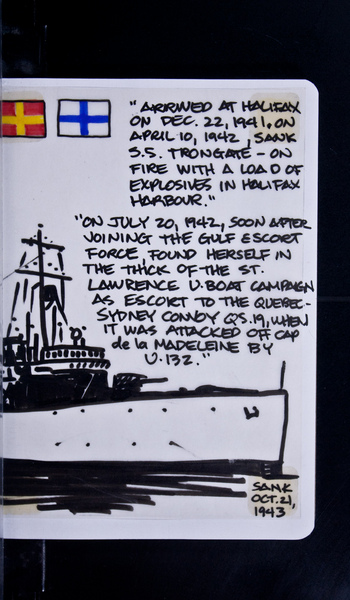 "ARRIVED AT HALIFAX
ON DEC. 22, 1941, ON
APRIL 10, 1942, SANK
S.S. TRONGATE - ON
FIRE WITH A LOAD OF
EXPLOSIVES IN HALIFAX
HARBOUR."
"ON JULY 20, 1942, SOON AFTER
NOINING THE GULF ESCORT
FORCE, FOUND HERSELF IN
THE THICK OF THE ST.
LAWRENCE U.BOAT CAMPAIGN
AS ESCORT TO THE QUEBEC-
SYDNEY CONVOY QS.19, WHEN
IT WAS ATTACKED OFF CAP
de la MADELEINE BY
U.132."
SANK
OCT. 21,
1943